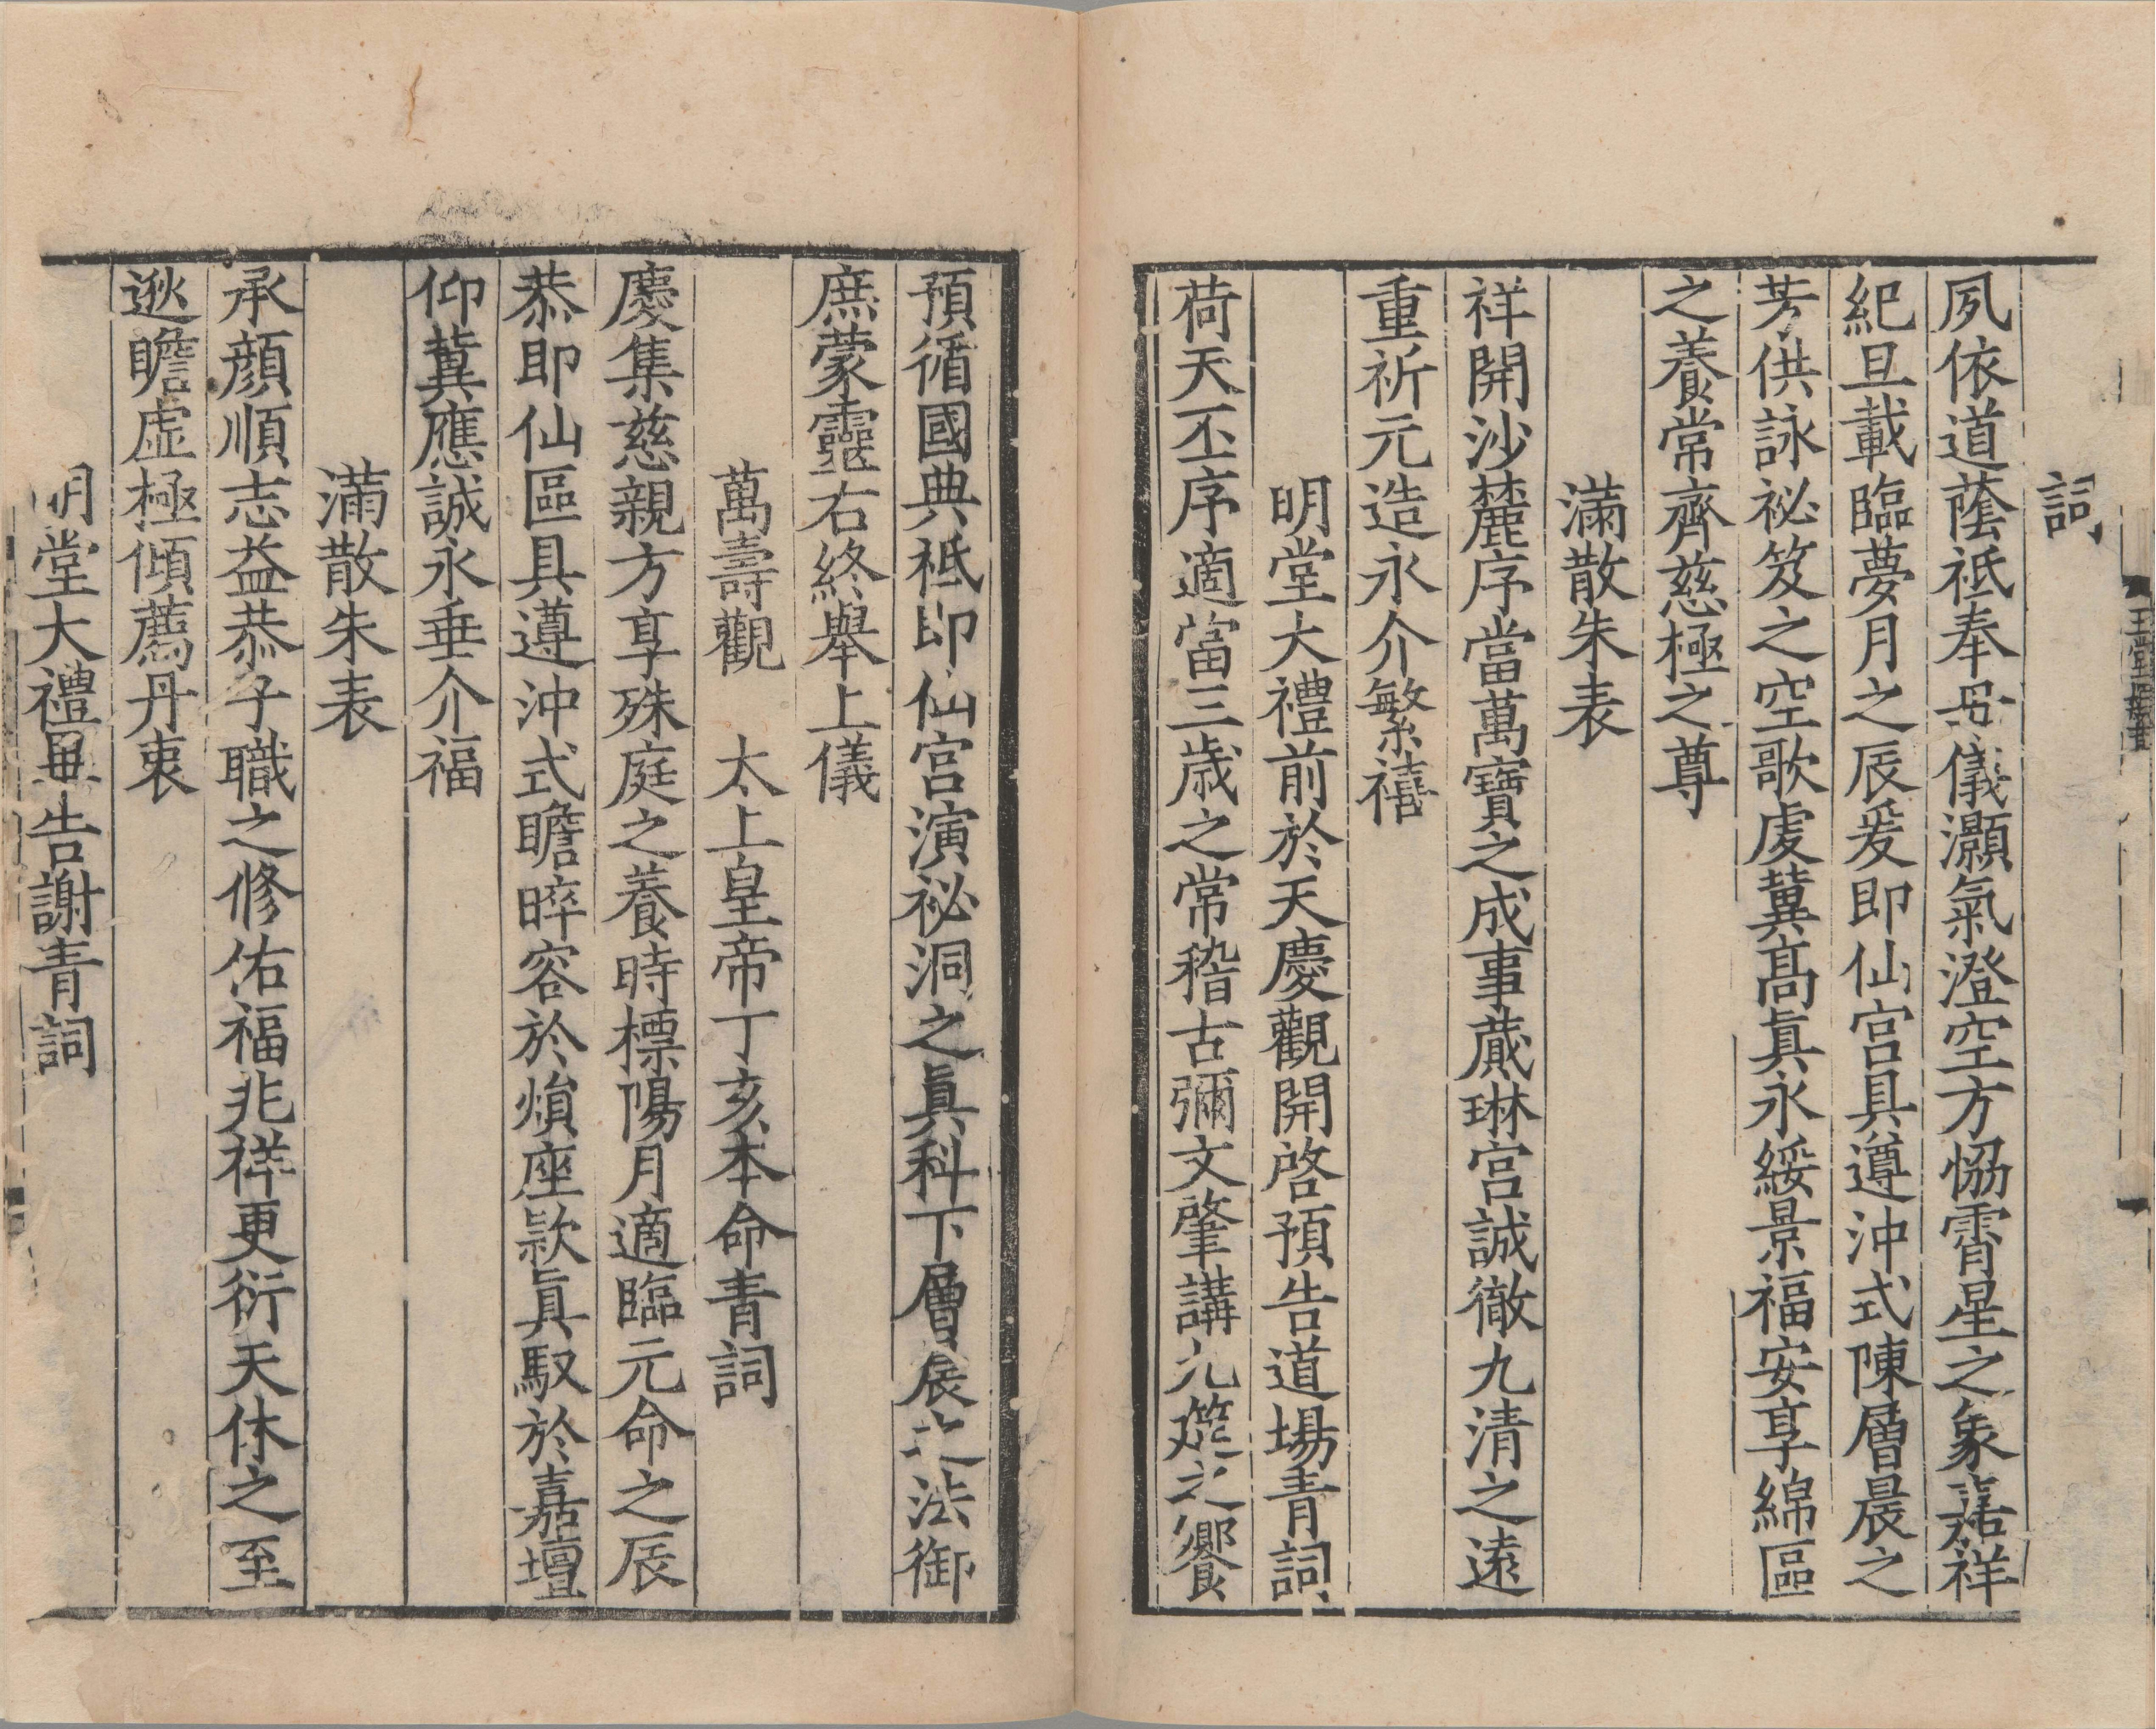 詞
夙依道蔭祗奉母儀灝氣澄空方恊霄星之象嘉祥
紀旦載臨夢月之辰爰即仙宮具遵沖式陳層晨之
芳供詠祕笈之空歌虔冀髙眞永綏景福安享綿區
之養常齊慈極之尊
滿散朱表
祥開沙麓序當萬寶之成事蕆琳宮誠徹九清之逺
重祈元造永介繁禧
明堂大禮前於天慶觀開啓預告道場青詞
荷天丕序適當三歳之常稽古彌文肇講九筵之饗
預循國典祗即仙宮演祕洞之眞科下層展之法御
庶蒙靈右終舉上儀
萬壽觀 太上皇帝丁亥本命青詞
慶集慈親方享殊庭之養時標陽月適臨元命之辰
恭即仙區具遵沖式瞻睟容於煩座款眞馭於嘉壇
仰冀應誠永垂介福
滿散朱表
承顔順志益恭子職之修佑福兆祥更衍天休之至
逖瞻虛極傾薦丹衷
明堂大禮畢告謝青詞